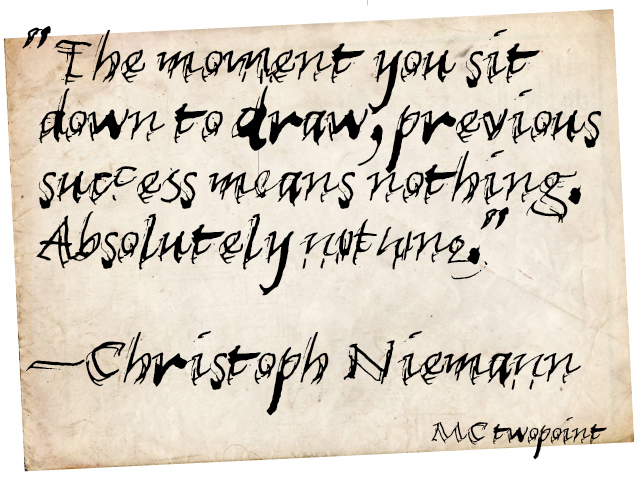 "The moment you sit
down to draw, previous
success means nothing.
Absolutely nothing."
—Christoph Niemann
MC twopoint